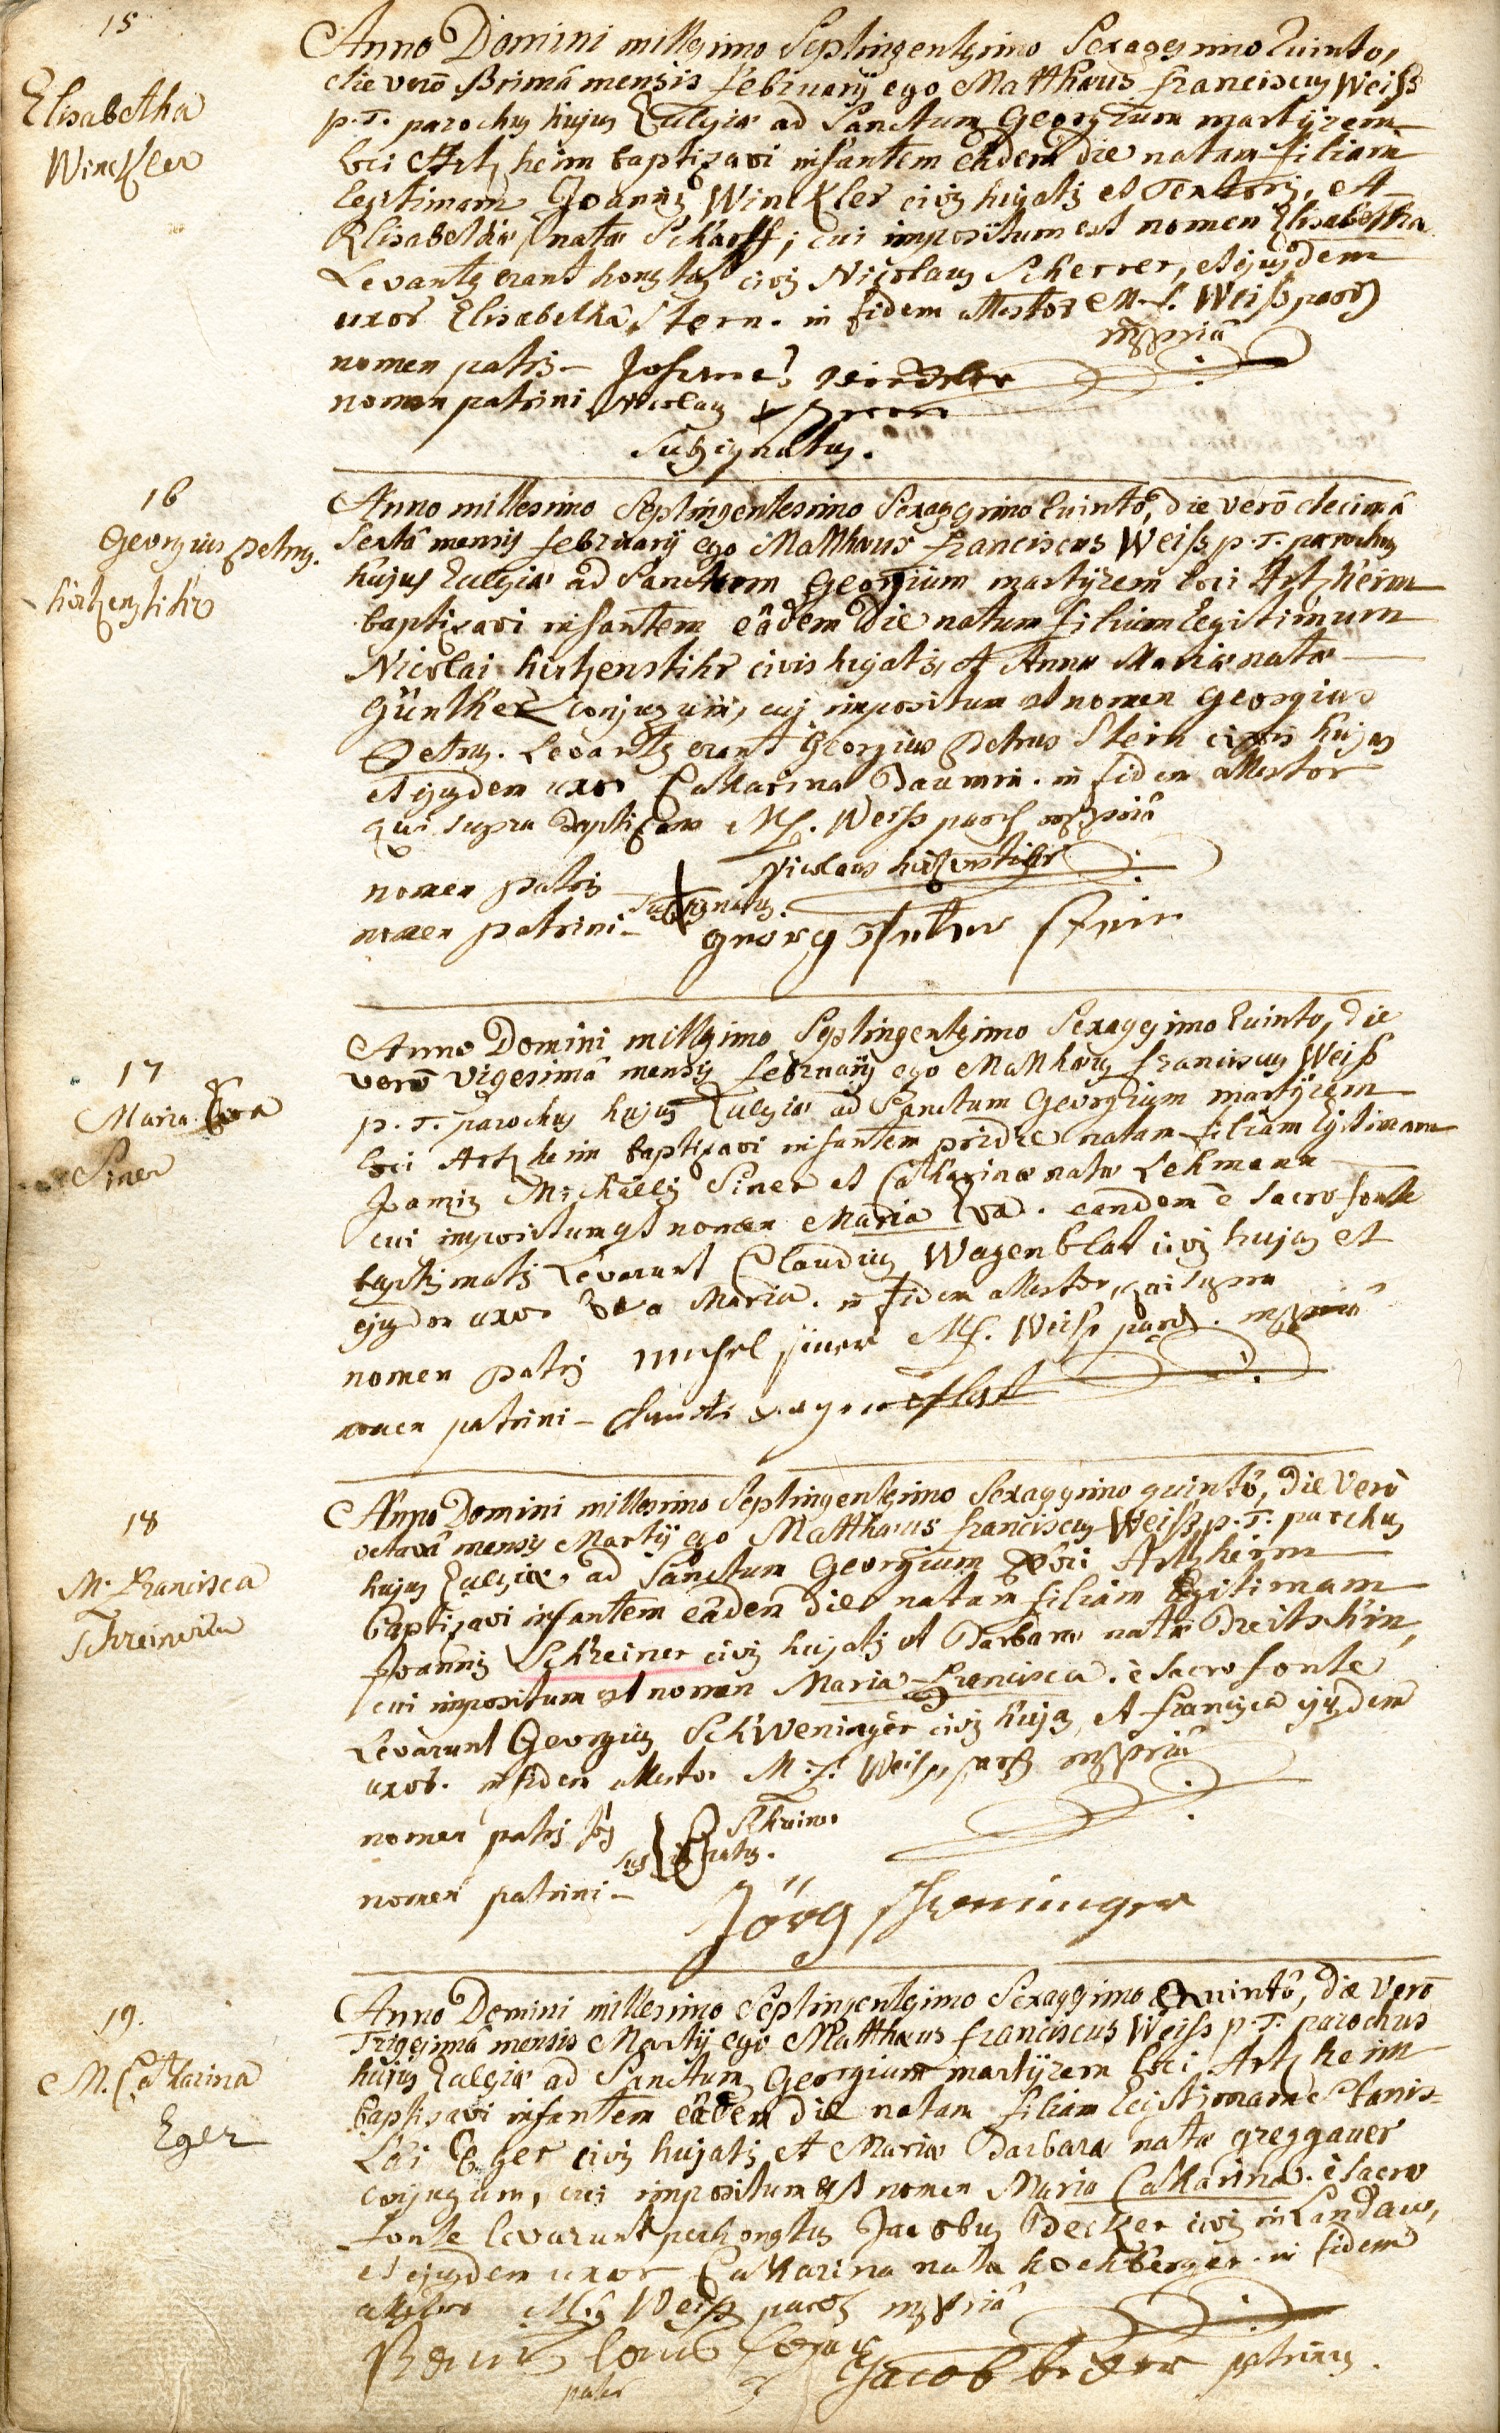 15
Elisabetha
Winckler
Anno Domini millesimo Septingentesimo Sexagesimo Quinto,
die verō Primâ mensis Februarÿ ego Matthæus Franciscus Weiss
p. T. parochus hujus Ecclesiæ ad Sanctum Georgium martÿrem
loci Artzheim baptizavi infantem eâdem die natam filiam
legitimam Joannis Winckler civis hujatis et Textoris, et
Elisabethæ natæ Scharff; cui impositum est nomen Elisabetha
Levantes erant honestus civis Nicolaus Scherrer, et ejusdem
uxor Elisabetha Stern. in fidem attestor M. F. Weiß paroch
mppriâ
nomen patris – Johannes Winckler
nomen patrini Nicolaus
Subsignatus.
16
Georgius Petrus.
hirtzenstihr
Anno millesimo Septingentesimo Sexagesimo Quintô, die verō decimâ
Sextâ mensis Februarÿ ego Matthæus Franciscus Weiss p. T. parochus
hujus Ecclesiæ ad Sanctum Georgium martÿrem loci Artzheim
baptizavi infantem eâdem die natum filium legitimum
Nicolai hirtzenstihr civis hujatis, et Annæ Mariæ natæ
Günther conjugum, cui impositum est nomen Georgius
Petrus. Levantes erant Georgius Petrus Stern civis hujas
et ejusdem uxor Catharina Daumin. in fidem attestor
qui supra baptizans M. F. Weiss paroch mppriâ
nomen patris Nicolaus hirtzenstihr
Subsignatus
nomen patrini – georg Petter Stern
17
Maria Eva
Siner
Anno Domini millesimo Septingentesimo Sexagesimo Quinto, die
verō vigesimâ mensis Februarÿ ego Matthæus Franciscus Weiß
p. T. parochus hujus Ecclesiæ ad Sanctum Georgium martÿrem
loci Artzheim baptizavi infantem pridie natam filiam legitimam
Joannis Michaëlis Siner et Catharinæ natæ Lehmann
cui impositum est nomen Maria Eva. eandem è sacro fonte
baptismatis Levarunt Claudius Wagenblat civis hujas et
ejusdem uxor Eva Maria. in fidem attestor, qui supra
nomen patris Michel siner M. F. Weiss paroch. mppriâ
nomen patrini –
18
M. Francisca
Schreinerin
Anno Domini millesimo Septingentesimo Sexagesimo quintô, die verò
octavâ mensis Martÿ ego Matthæus Franciscus Weiss p. T. parochus
hujus Ecclesiæ ad Sanctum Georgium loci Artzheim
baptizavi infantem eâdem die natam filiam legitimam
Joannis Schreiner civis hujatis et Barbaræ natæ Dreitschin,
cui impositum est nomen Maria Francisca. è sacro fonte
Levarunt Georgius Schweninger civis hujas, et Francisca ejusdem
uxor. in fidem attestor M. F. Weiss, paroch mppriâ
nomen patris Joes Schreiner
Subsignatus.
nomen patrini –
Jörg Schweninger
19.
M. Catharina
Eger
Anno Domini millesimo Septingentesimo Sexagesimo Quintô, die verō
Trigesimâ mensis Martÿ ego Matthæus Franciscus Weiss p. T. parochus
hujus Ecclesiæ ad Sanctum Georgium martÿrem loci Artzheim
baptizavi infantem eâdem die natam filiam legitimam Stanis-
lai Eger civis hujatis et Mariæ Barbara natæ greggauer
conjugum, cui impositum est nomen Maria Catharina. è sacro
fonte levarunt perhonestus Jacobus Becker civis in Landau,
et ejusdem uxor Catharina nata hochberger. in fidem
attestor M. F. Weiss paroch mppriâ
pater
Jacob becker patrinus.